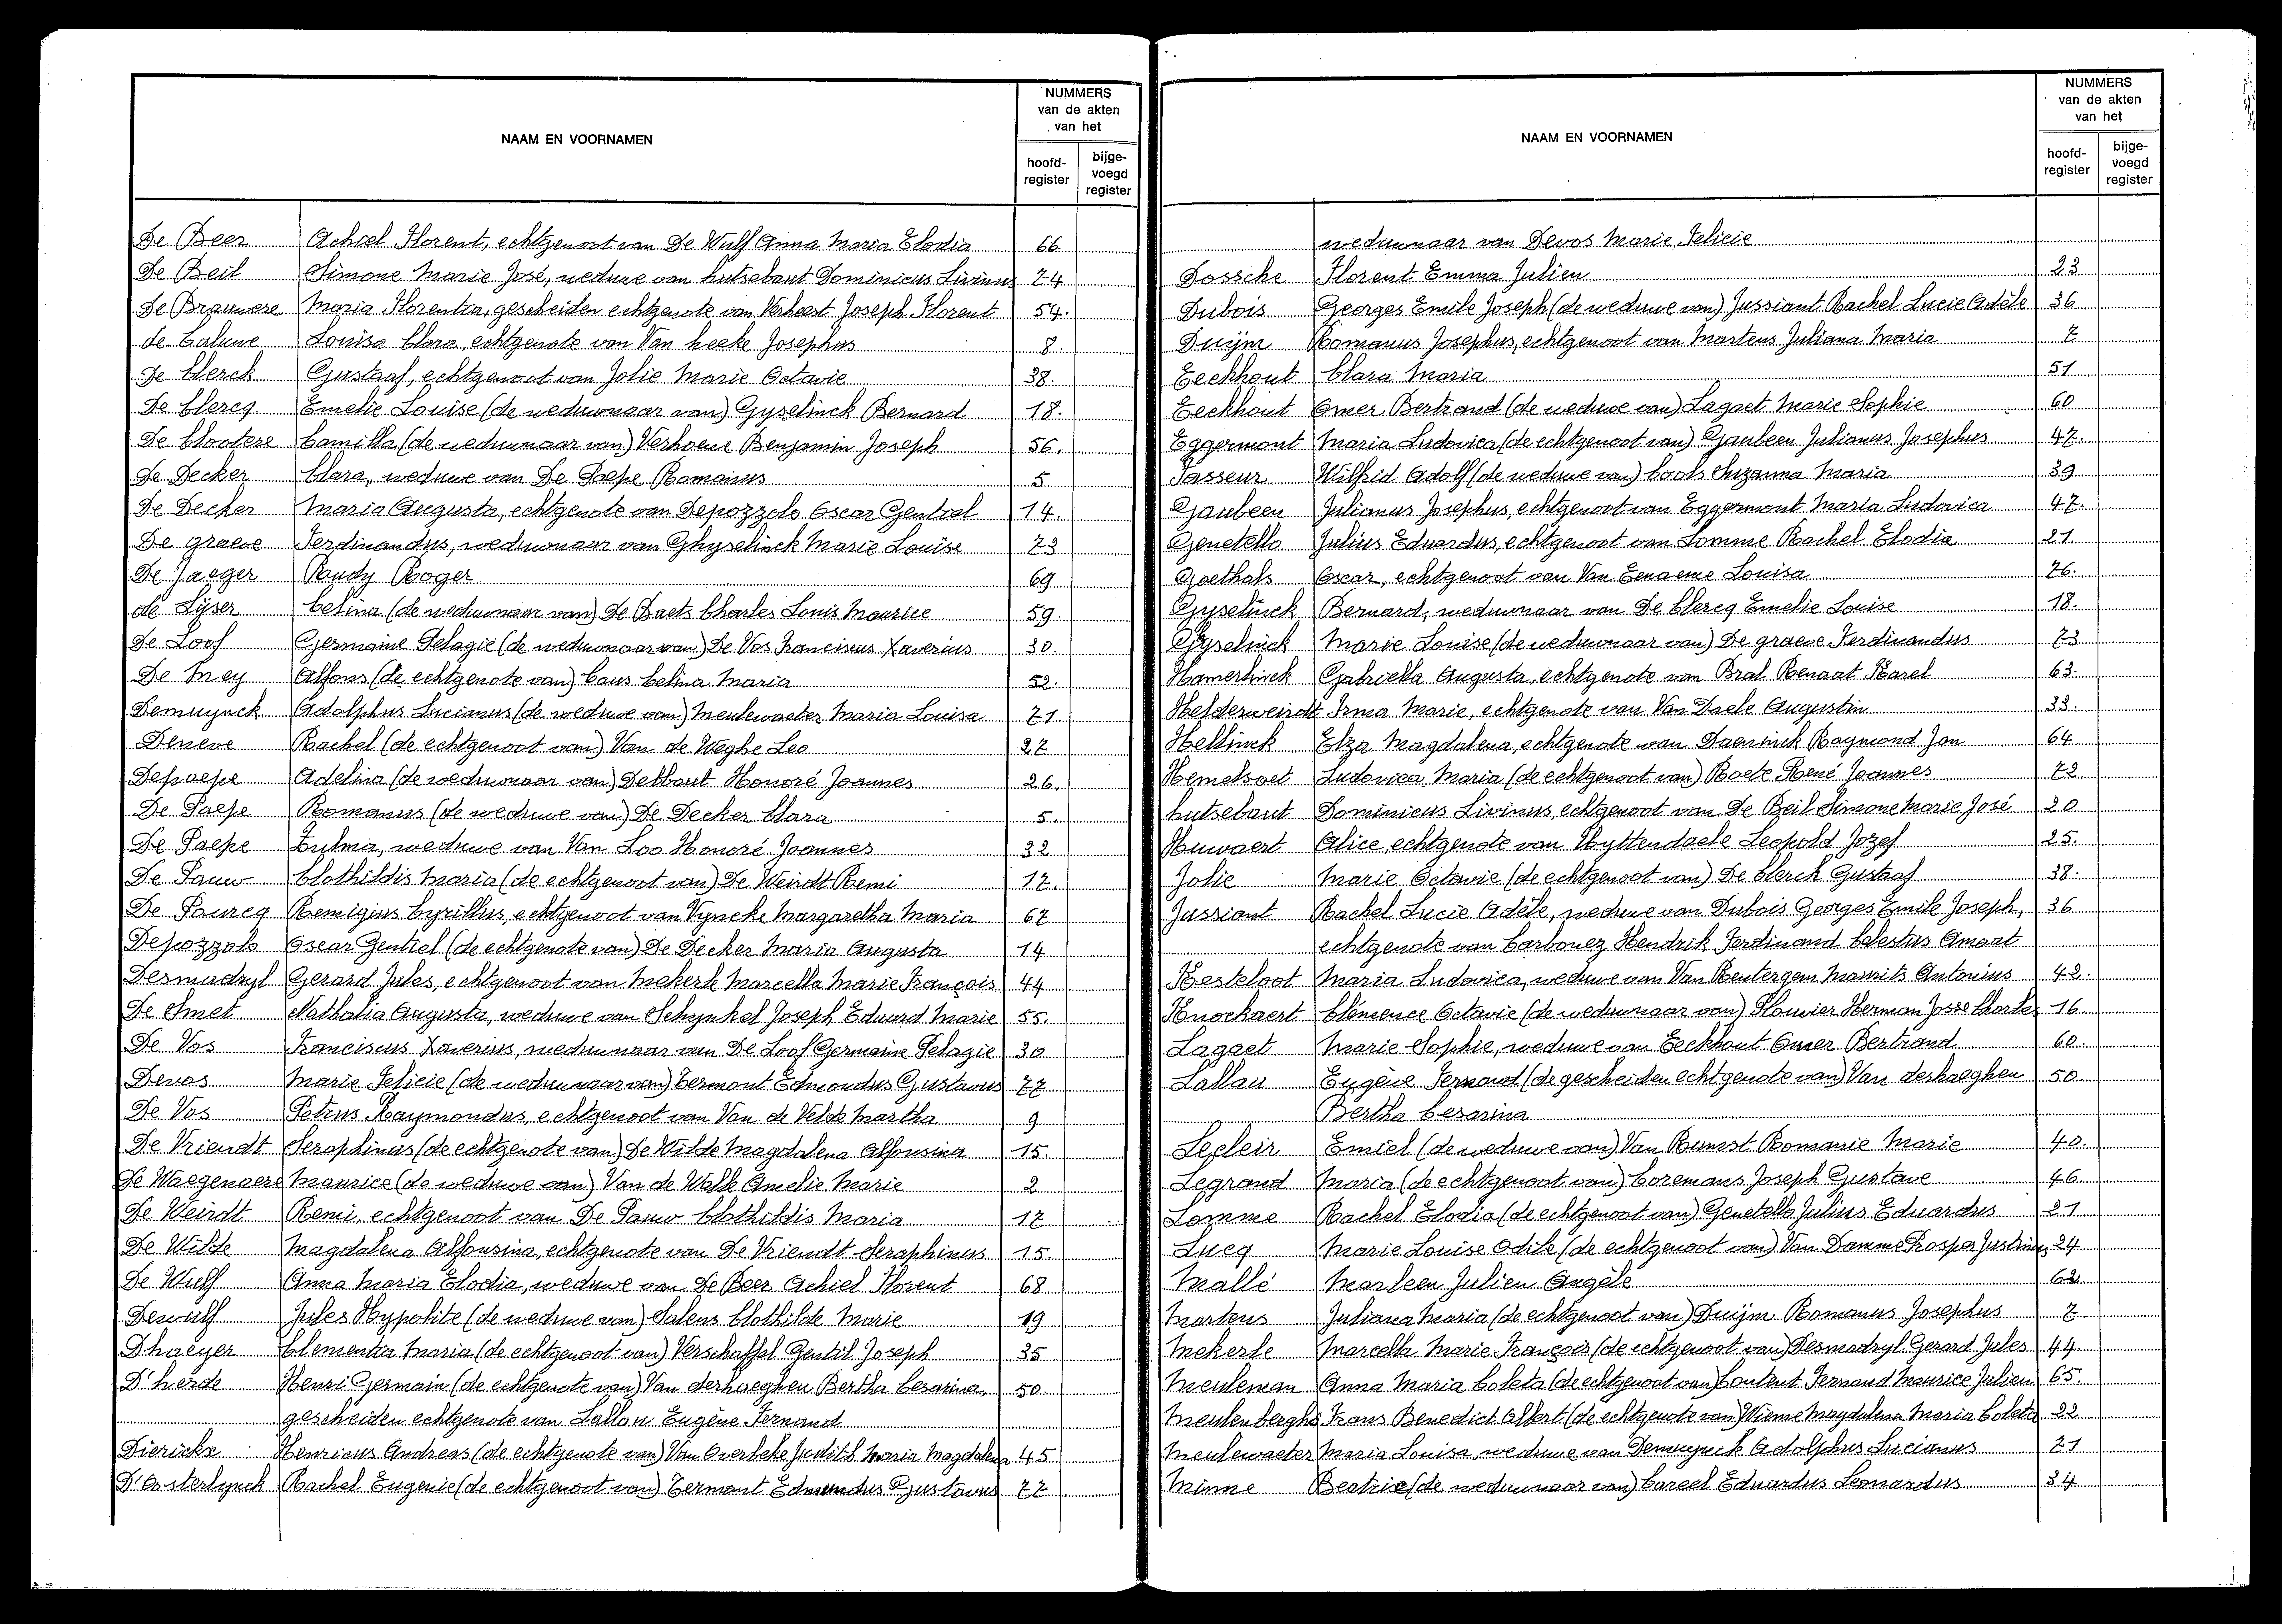 NAAM EN VOORNAMEN
NUMMERS
van de akten
van het
hoofd-
register
bijge-
voegd
register
De Beer Achiel Florent, echtgenoot van De Wulf Anna Maria Elodia 66
De Beil Simone Marie José, weduwe van hutsebaut Dominicus Livinus 74
De Brauwere Maria Florentia, gescheiden echtgenote van Verhaert Joseph Florent 54.
de Caluwe Louisa Clara, echtgenote van Van hecke Josephus 8.
De Clerck Gustaaf, echtgenoot van Jolie Marie Octavie 38.
De Clercq Emelie Louise (de weduwnaar van) Gyselinck Bernard 18.
De Clootere Camilla (de weduwnaar van) Verhoene Benjamin Joseph 56.
De Decker Clara, weduwe van De Paepe Romanus 5
De Decker Maria Augusta, echtgenote van Depozzolo Oscar Gentiel 14.
De graeve Ferdinandus, weduwnaar van Ghyselinck Marie Louise 73
De Jaeger Rudy Roger 69
de Lÿser Celina (de weduwnaar van) De Baets Charles Louis Maurice 59.
De Loof Germaine Pelagie (de weduwnaar van) De Vos Franciscus Xaverius 30.
De Mey Alfons (de echtgenote van) Caus Celina Maria 52.
Demuynck Adolphus Lucianus (de weduwe van) Meulewaeter Maria Louisa 71
Deneve Rachel (de echtgenoot van) Van de Weghe Leo 27
Depaepe Adelina (de weduwnaar van) Debbaut Honoré Joannes 26.
De Paepe Romanus (de weduwe van) De Decker Clara 5.
De Paepe Zulma, weduwe van Van Loo Honoré Joannes 32
De Pauw Clothildis Maria (de echtgenoot van) De Weirdt Remi 17.
De Pourcq Remigius Cyrillus, echtgenoot van Vyncke Margaretha Maria 67
Depozzolo Oscar Gentiel (de echtgenote van) De Decker Maria Augusta 14
Desmadryl Gerard Jules, echtgenoot van Mekerle Marcella Marie François 44
De Smet Nathalia Augusta, weduwe van Schynkel Joseph Eduard Marie 55.
De Vos Franciscus Xaverius, weduwnaar van De Loof Germaine Pelagie 30
Devos Marie Felicie (de weduwnaar van) Cermont Edmondus Gustavus 77
De Vos Petrus Raymondus, echtgenoot van Van de Velde Martha 9
De Vriendt Seraphinus (de echtgenote van) De Wilde Magdalena Alfonsina 15.
De Waegenaere Maurice (de weduwe van) Van de Walle Amelie Marie 2
De Weirdt Remi, echtgenoot van De Pauw Clothildis Maria 17
De Wilde Magdalena Alfonsina, echtgenote van De Vriendt Seraphinus 15.
De Wulf Anna Maria Elodia, weduwe van De Beer Achiel Florent 68
Dewulf Jules Hypolite (de weduwe van) Salens Clothilde Marie 19
Dhaeyer Clementia Maria (de echtgenoot van) Verschaffel Gentil Joseph 35
D'herde Henri Germain (de echtgenote van) Van derhaeghen Bertha Cesarina, 50
gescheiden echtgenote van Lallau Eugène Fernand
Dierickx Henricus Andreas (de echtgenote van) Van Overbeke Judith Maria Magdalena 45
D'Oosterlynck Rachel Eugenie (de echtgenoot van) Cermont Edmondus Gustavus 77
NAAM EN VOORNAMEN
NUMMERS
van de akten
van het
hoofd-
register
bijge-
voegd
register
weduwnaar van Devos Marie Felicie
Dossche Florent Emma Julien 23
Dubois Georges Emile Joseph (de weduwe van) Jussiant Rachel Lucie Adèle 36
Duijm Romanus Josephus, echtgenoot van Martens Juliana Maria 7
Eeckhout Clara Maria 51
Eeckhout Omer Bertrand (de weduwe van) Lagaet Marie Sophie 60
Eggermont Maria Ludovica (de echtgenoot van) Gaubeen Julianus Josephus 47.
Fasseur Wilfrid Adolf (de weduwe van) Cools Suzanna Maria 39
Gaubeen Julianus Josephus, echtgenoot van Eggermont Maria Ludovica 47.
Genetello Julius Eduardus, echtgenoot van Lomme Rachel Elodia 21
Goethals Oscar, echtgenoot van Van Eenaeme Louisa 76.
Gyselinck Bernard, weduwnaar van De Clercq Emelie Louise 18.
Gyselinck Marie Louise (de weduwnaar van) De graeve Ferdinandus 73
Hamerlinck Gabriella Augusta, echtgenote van Bral Renaat Karel 63.
Helderweirdt Irma Marie, echtgenote van Van Daele Augustin 33.
Hellinck Elza Magdalena, echtgenote van Daeninck Raymond Jan 64
Hemelsoet Ludovica Maria (de echtgenoot van) Baete René Joannes 72
hutsebaut Dominicus Livinus, echtgenoot van De Beil Simone Marie José 20
Huwaert Alice, echtgenote van Hyttendaele Leopold Jozef 25.
Jolie Marie Octavie (de echtgenoot van) De Clerck Gustaaf 38.
Jussiant Rachel Lucie Adèle, weduwe van Dubois Georges Emile Joseph, 36
echtgenote van Carbonez Hendrik Ferdinand Celestus Amaat
Kesteloot Maria Ludovica, weduwe van Van Renterghem Maurits Antonius 42.
Knockaert Clémence Octavie (de weduwnaar van) Plouvier Herman Josse Charles 16.
Lagaet Marie Sophie, weduwe van Eeckhout Omer Bertrand 60.
Lallau Eugène Fernand (de gescheiden echtgenote van) Van derhaeghen 50
Bertha Cesarina
Lecleir Emiel (de weduwe van) Van Rumst Romanie Marie 40.
Legrand Maria (de echtgenoot van) Coremans Joseph Gustave 46
Lomme Rachel Elodia (de echtgenoot van) Genetello Julius Eduardus 21
Lucq Marie Louise Odile (de echtgenoot van) Van Damme Prosper Justinus 24
Mallé Marleen Julien Angèle 62
Martens Juliana Maria (de echtgenoot van) Duijm Romanus Josephus 7
Mekerle Marcella Marie François (de echtgenoot van) Desmadryl Gerard Jules 44
Meuleman Anna Maria Coleta (de echtgenoot van) Coutent Fernand Maurice Julien 65.
Meulenberghs Frans Benedict Albert (de echtgenote van) Wieme Magdalena Maria Coleta 22
Meulewaeter Maria Louisa, weduwe van Demuynck Adolphus Lucianus 71
Minne Beatrice (de weduwnaar van) Careel Eduardus Leonardus 34